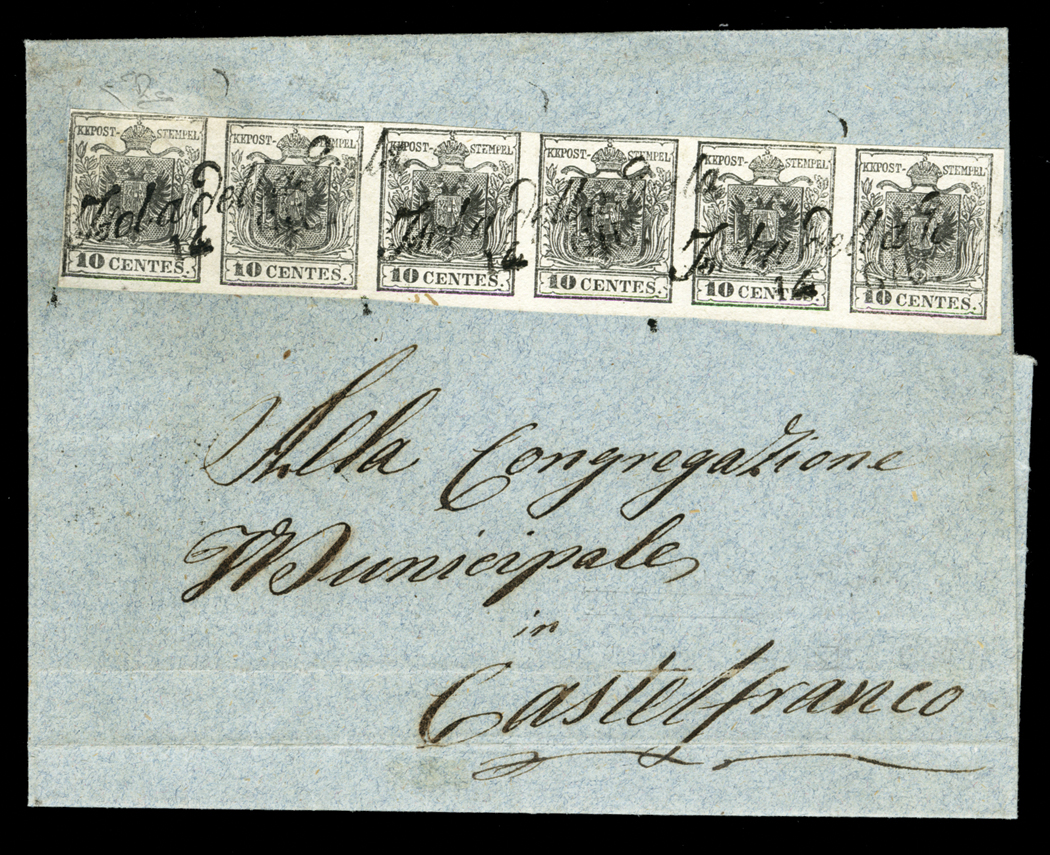 KKPOST-STEMPEL KKPOST-STEMPEL KKPOST-STEMPEL KKPOST-STEMPEL KKPOST-STEMPEL KKPOST-STEMPEL
Isola della Isola della Isola della
14 14 14
10 CENTES. 10 CENTES. 10 CENTES. 10 CENTES. 10 CENTES. 10 CENTES.
Alla Congregazione
Municipale
in
Castelfranco